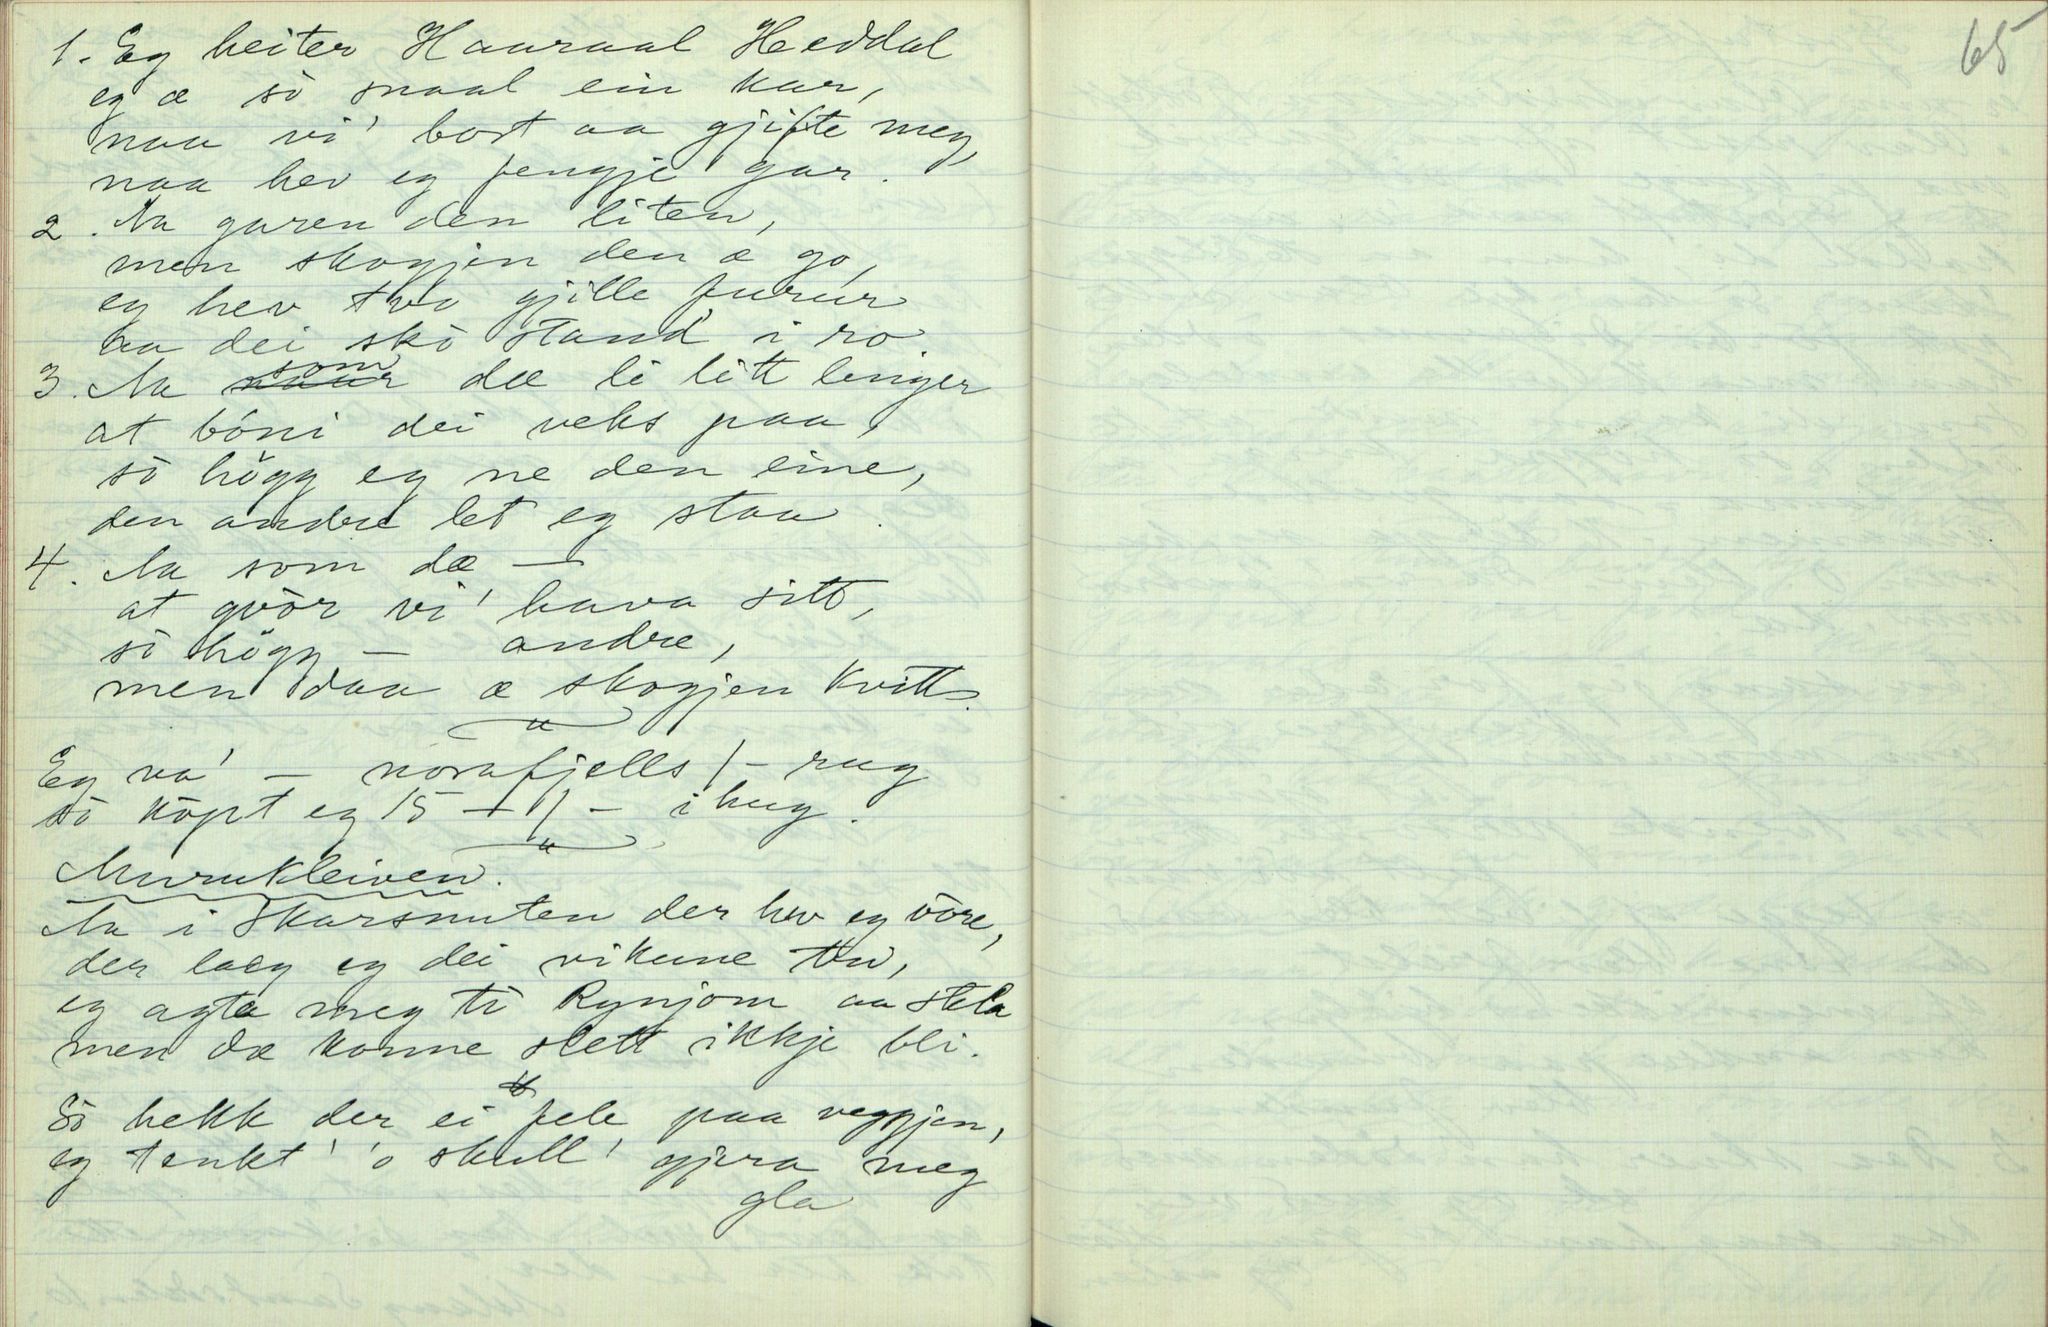 1. Eg heiter Hauraal Heddal
eg æ so snaal ein kar,
naa vi' bort aa gjifte meg,
naa hev eg fengje gar.
2. Aa garen den liten,
men skogjen den æ go,
eg hev tvo gjille furur
aa dei sko stand' i ro
3. Aa som dæ li litt lenger
at bóni dei veks paa,
so högg eg ne den eine,
den andre let eg staa.
4. Aa som dæ —
at qvör vi' hava sitt,
so högg — andre,
men daa æ skogjen kvitt.
Eg va' — norafjells /- rug
so köpt eg 15 — /- i hug.
Murukleiven.
Aa i Skarsnuten der hev eg vöre,
der laag eg dei vikune tri,
eg agta meg ti Rynjom aa stela
men dæ konne slett ikkje bli.
So hekk der ei fele paa veggjen,
eg tenkt' 'o skull' gjera meg
gla
65